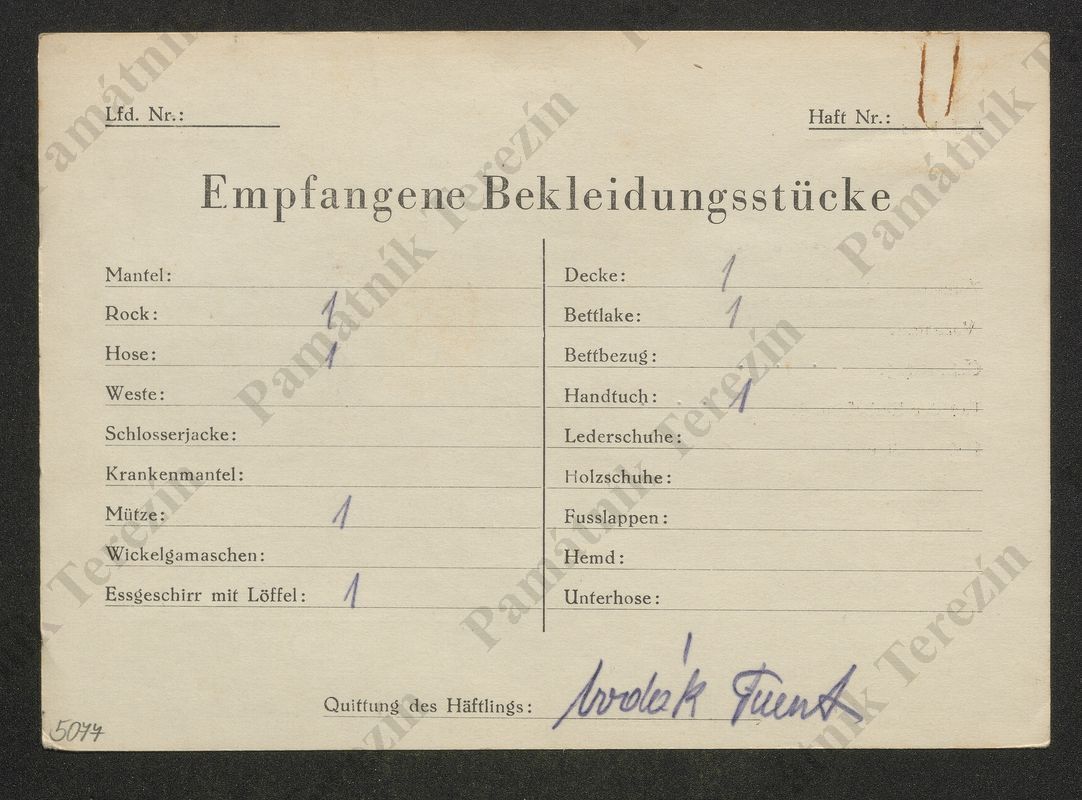 Lfd. Nr.:
Haft Nr.:
Empfangene Bekleidungsstücke
Mantel:
Rock: 1
Hose: 1
Weste:
Schlosserjacke:
Krankenmantel:
Mütze: 1
Wickelgamaschen:
Essgeschirr mit Löffel: 1
Decke: 1
Bettlake: 1
Bettbezug:
Handtuch: 1
Lederschuhe:
Holzschuhe:
Fusslappen:
Hemd:
Unterhose:
Quittung des Häftlings:
5077
Památník Terezín